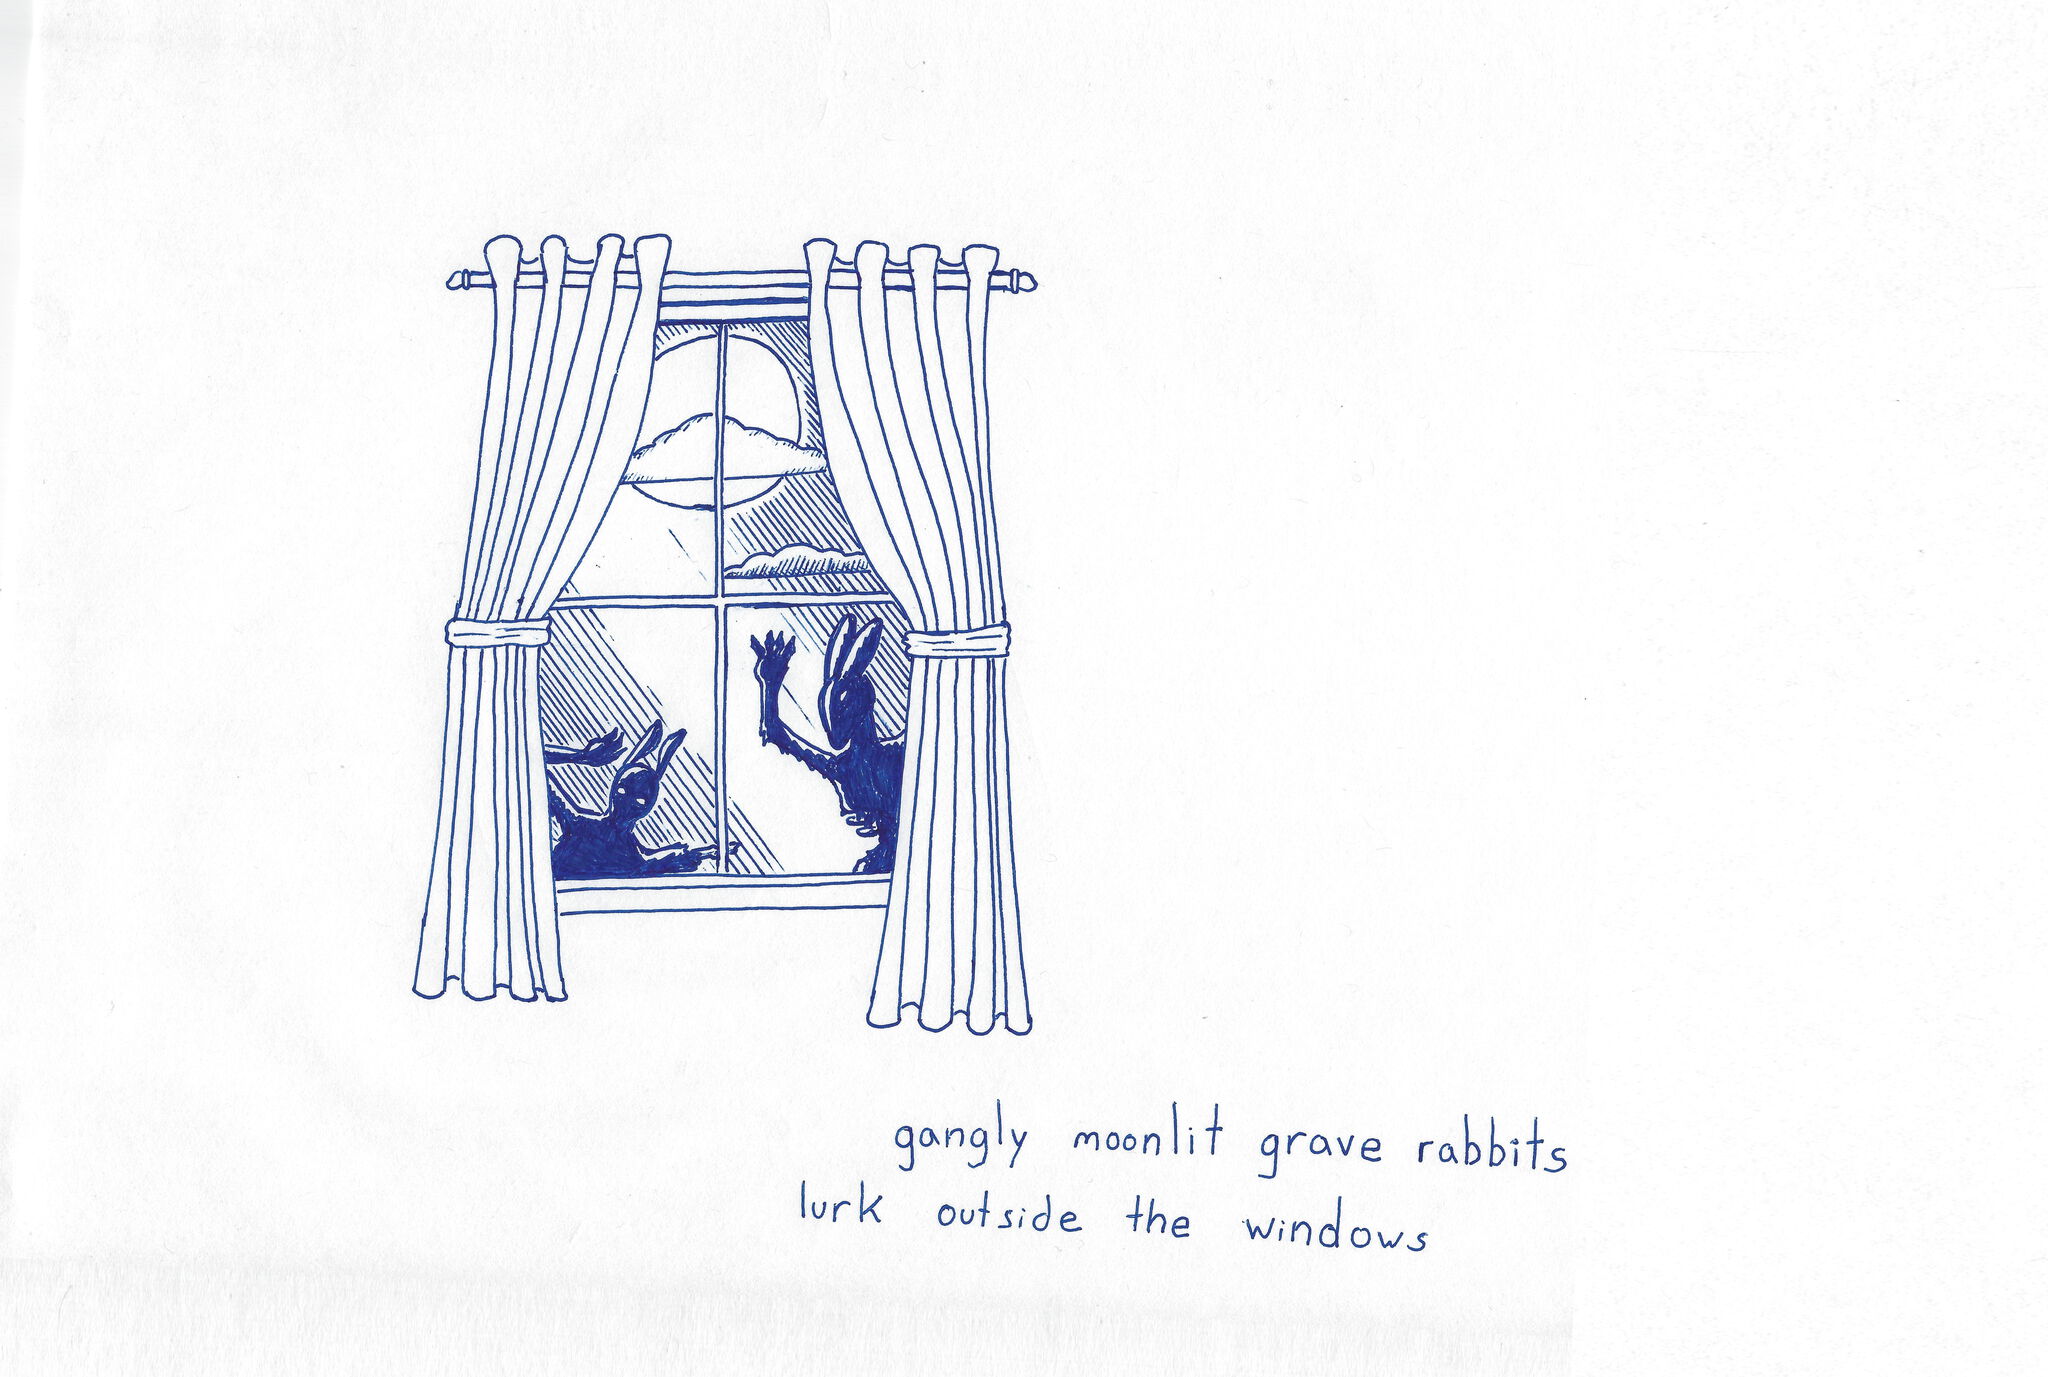 gangly moonlit grave rabbits
lurk outside the windows